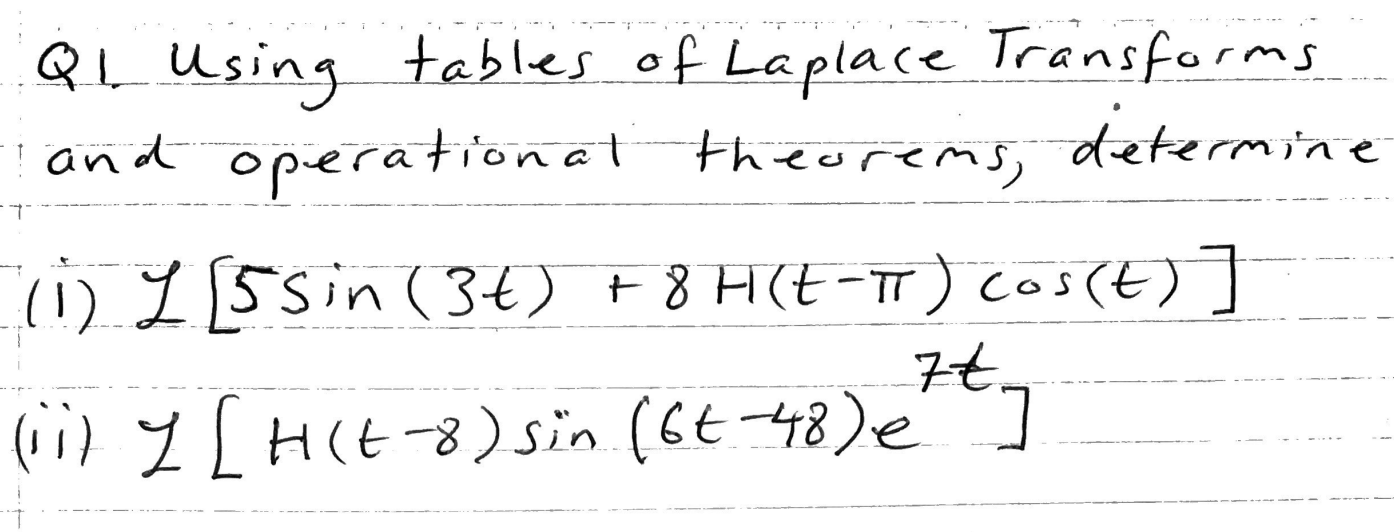 Q1 Using tables of Laplace Transforms
and operational theorems, determine
(i) ℒ [5 sin (3t) + 8 H(t-π) cos(t)]
(ii) ℒ [H(t-8) sin (6t-48) e^{7t}]